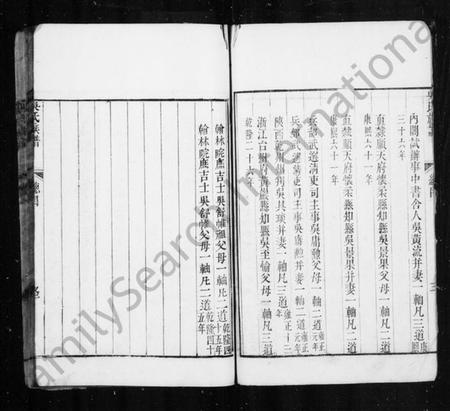 內閣試辦事中書舍人吳黃流并妻一軸凡三道康熙
三十六年
直隸順天府懷柔縣知縣吳景果父母一軸凡二道
康熙六十一年
直隸順天府懷柔縣知縣吳景果并妻一軸凡二道
康熙六十一年
兵部武選清吏司主事吳 父母一軸凡二道雍正元年
兵部武選清吏司主事吳 并妻一軸凡二道雍正元年
陝西 吳 并妻一軸凡三道雍正十三年
浙江台州 縣知縣吳至愉父母一軸凡二道
乾隆二十六年
翰林院庶吉士吳舒帷 父母一軸凡二道乾隆四十五年
翰林院庶吉士吳舒帷父母一軸凡二道乾隆四十五年
吳氏族譜
FamilySearch International